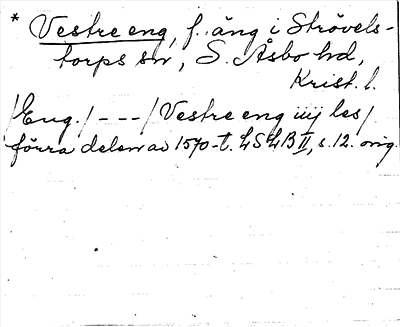 * Vestre eng, f. äng i Strövels-
torps sn, S. Åsbo hd,
Krist. l.
/Eng./ - - - / Vestre eng iiij les/
förra delen av 1570-t. LSLB II, s. 12. orig.